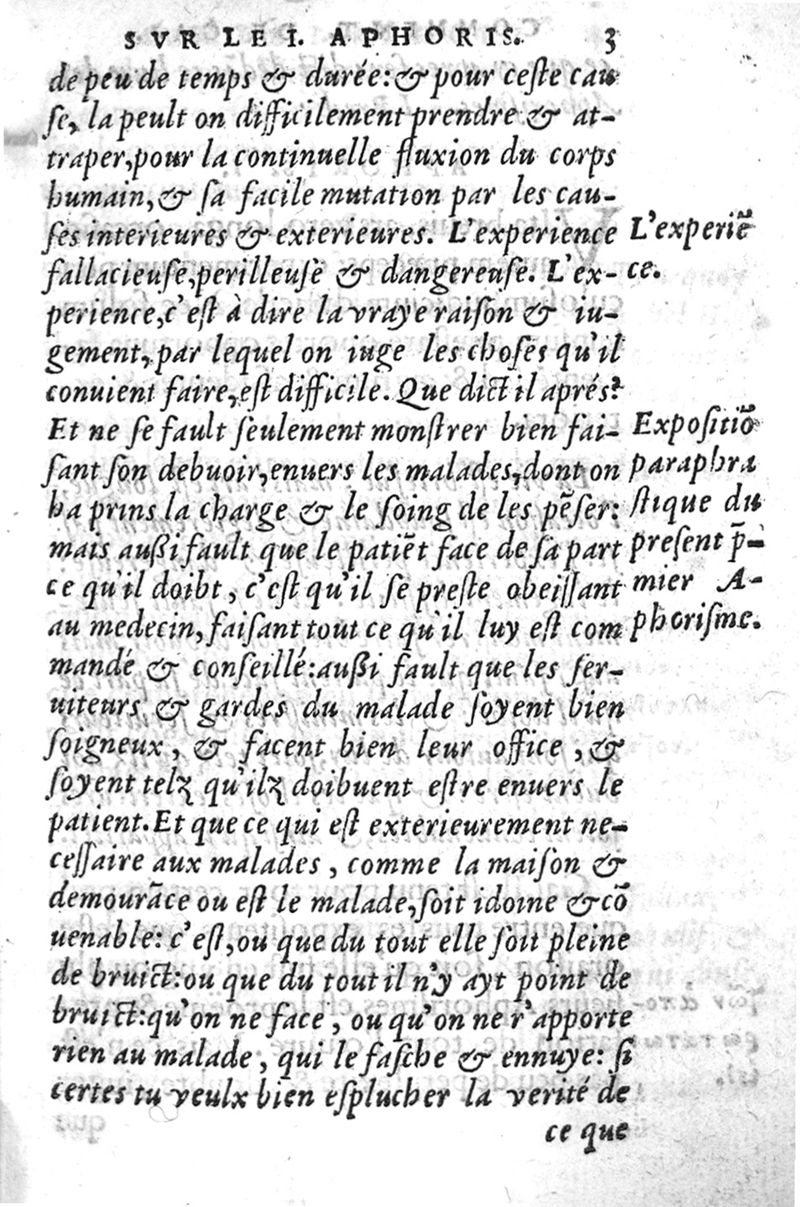 SVR LE I. APHORIS. 3
de peu de temps & durée: & pour ceſte cau
ſe, la peult on difficilement prendre & at-
traper, pour la continuelle fluxion du corps
humain, & ſa facile mutation par les cau-
ſes interieures & exterieures. L'experience
fallacieuſe, perilleuſe & dangereuſe. L'ex-
perience, c'eſt à dire la vraye raiſon & iu-
gement, par lequel on iuge les choſes qu'il
conuient faire, eſt difficile. Que dict il aprés?
Et ne ſe fault ſeulement monſtrer bien fai-
ſant ſon debuoir, enuers les malades, dont on
ha prins la charge & le ſoing de les pẽſer:
mais außi fault que le patiẽt face de ſa part
ce qu'il doibt, c'eſt qu'il ſe preſte obeiſſant
au medecin, faiſant tout ce qu'il luy eſt com
mandé & conſeillé: außi fault que les ſer-
uiteurs & gardes du malade ſoyent bien
ſoigneux, & facent bien leur office, &
ſoyent telz qu'ilz doibuent eſtre enuers le
patient. Et que ce qui eſt exterieurement ne-
ceſſaire aux malades, comme la maiſon &
demourãce ou eſt le malade, ſoit idoine & cõ
uenable: c'eſt, ou que du tout elle ſoit pleine
de bruict: ou que du tout il n'y ayt point de
bruict: qu'on ne face, ou qu'on ne r'apporte
rien au malade, qui le faſche & ennuye: ſi
certes tu veulx bien eſplucher la verité de
ce que
L'experiẽ
ce.
Expoſitiõ
paraphra
ſtique du
preſent p̃-
mier A-
phoriſme.